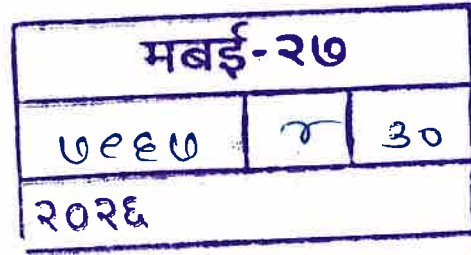 मबई-२७
७९६७ २ ३०
२०२६